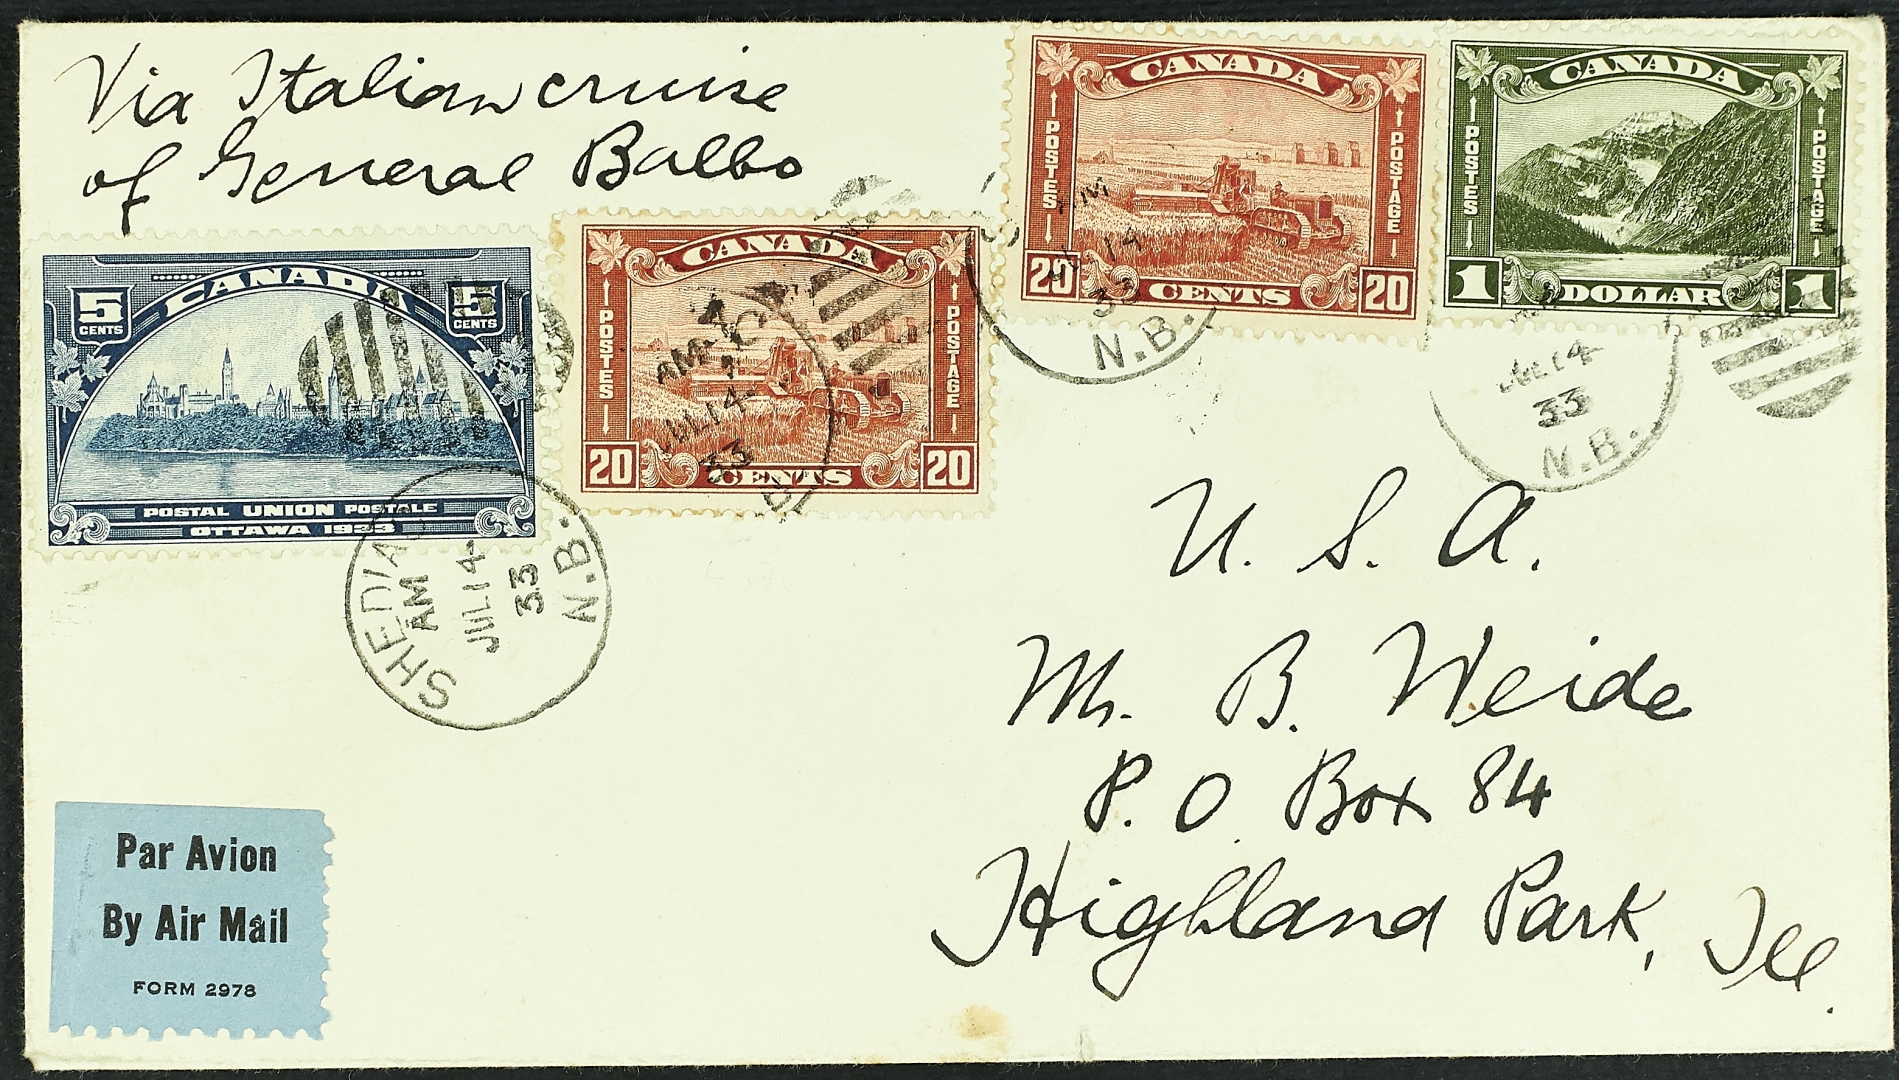 Via Italian cruise
of General Balbo
5 CANADA 5
CENTS CENTS
POSTAL UNION POSTALE
OTTAWA 1933
CANADA
POSTES POSTAGE
20 CENTS 20
AM-10
JUL 14
33
CANADA
POSTES POSTAGE
20 CENTS 20
AM
14
33
N.B.
CANADA
POSTES POSTAGE
1 DOLLAR 1
JUL 14
33
N.B.
SHEDIAC
AM
JUL 14
33
N.B.
U. S. A.
Mr. B. Weide
P. O. Box 84
Highland Park, Ill.
Par Avion
By Air Mail
FORM 2978